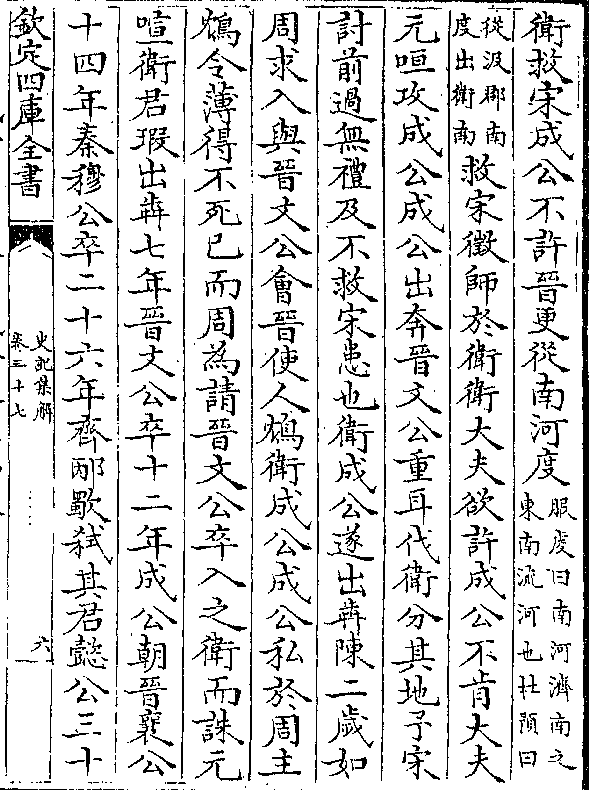 衛救宋成公不許晉更從南河度服虔曰南河濟南之東南流河也杜預曰
從汲郡南度出衛南救宋徵師於衛衛大夫欲許成公不肯大夫
元咺攻成公成公出奔晉文公重耳伐衛分其地予宋
討前過無禮及不救宋患也衛成公遂出犇陳二歲如
周求入與晉文公會晉使人鴆衛成公成公私於周主
鴆令薄得不死已而周為請晉文公卒入之衛而誅元
咺衛君瑕出犇七年晉文公卒十二年成公朝晉襄公
十四年秦穆公卒二十六年齊邴歜弑其君懿公三十
欽定四庫全書
史記集解
卷三十七
六